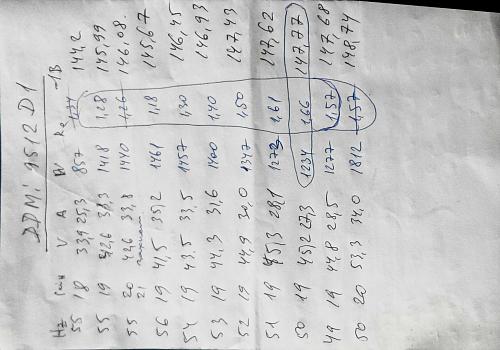 DDMi 9512 D1
Hz Сан V A W Re -1B
55 18 33,9 25,3 857 144,2
55 19 42,6 33,3 1418 1,28 145,99
55 20 42,6 33,8 1440 1,26 146,08
21
56 19 41,5 35,2 1461 1,18 145,67
54 19 43,5 33,5 1457 1,30 146,45
53 19 44,3 31,6 1400 1,40 146,93
52 19 44,9 30,0 1347 1,50 147,43
51 19 45,3 28,1 1272 1,61 147,62
50 19 45,2 27,3 1234 1,66 147,77
49 19 44,8 28,5 1277 1,57 147,68
50 20 53,3 34,0 1812 1,57 148,74